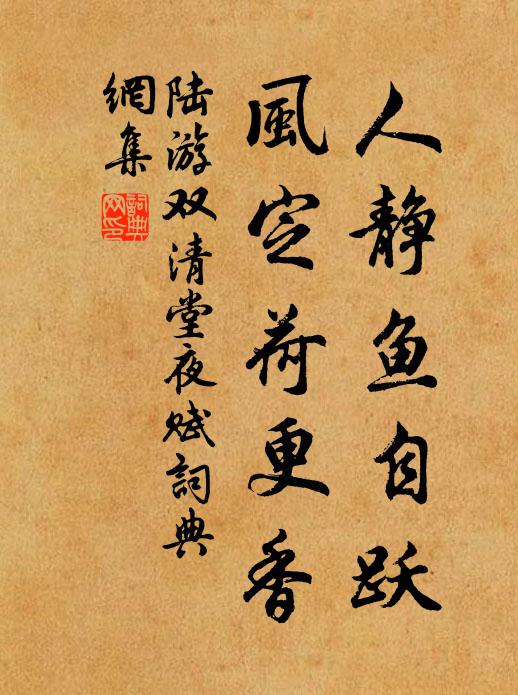 人静鱼自跃
風定荷更香
陆游双清堂夜赋詞典
網集
詞典
网印